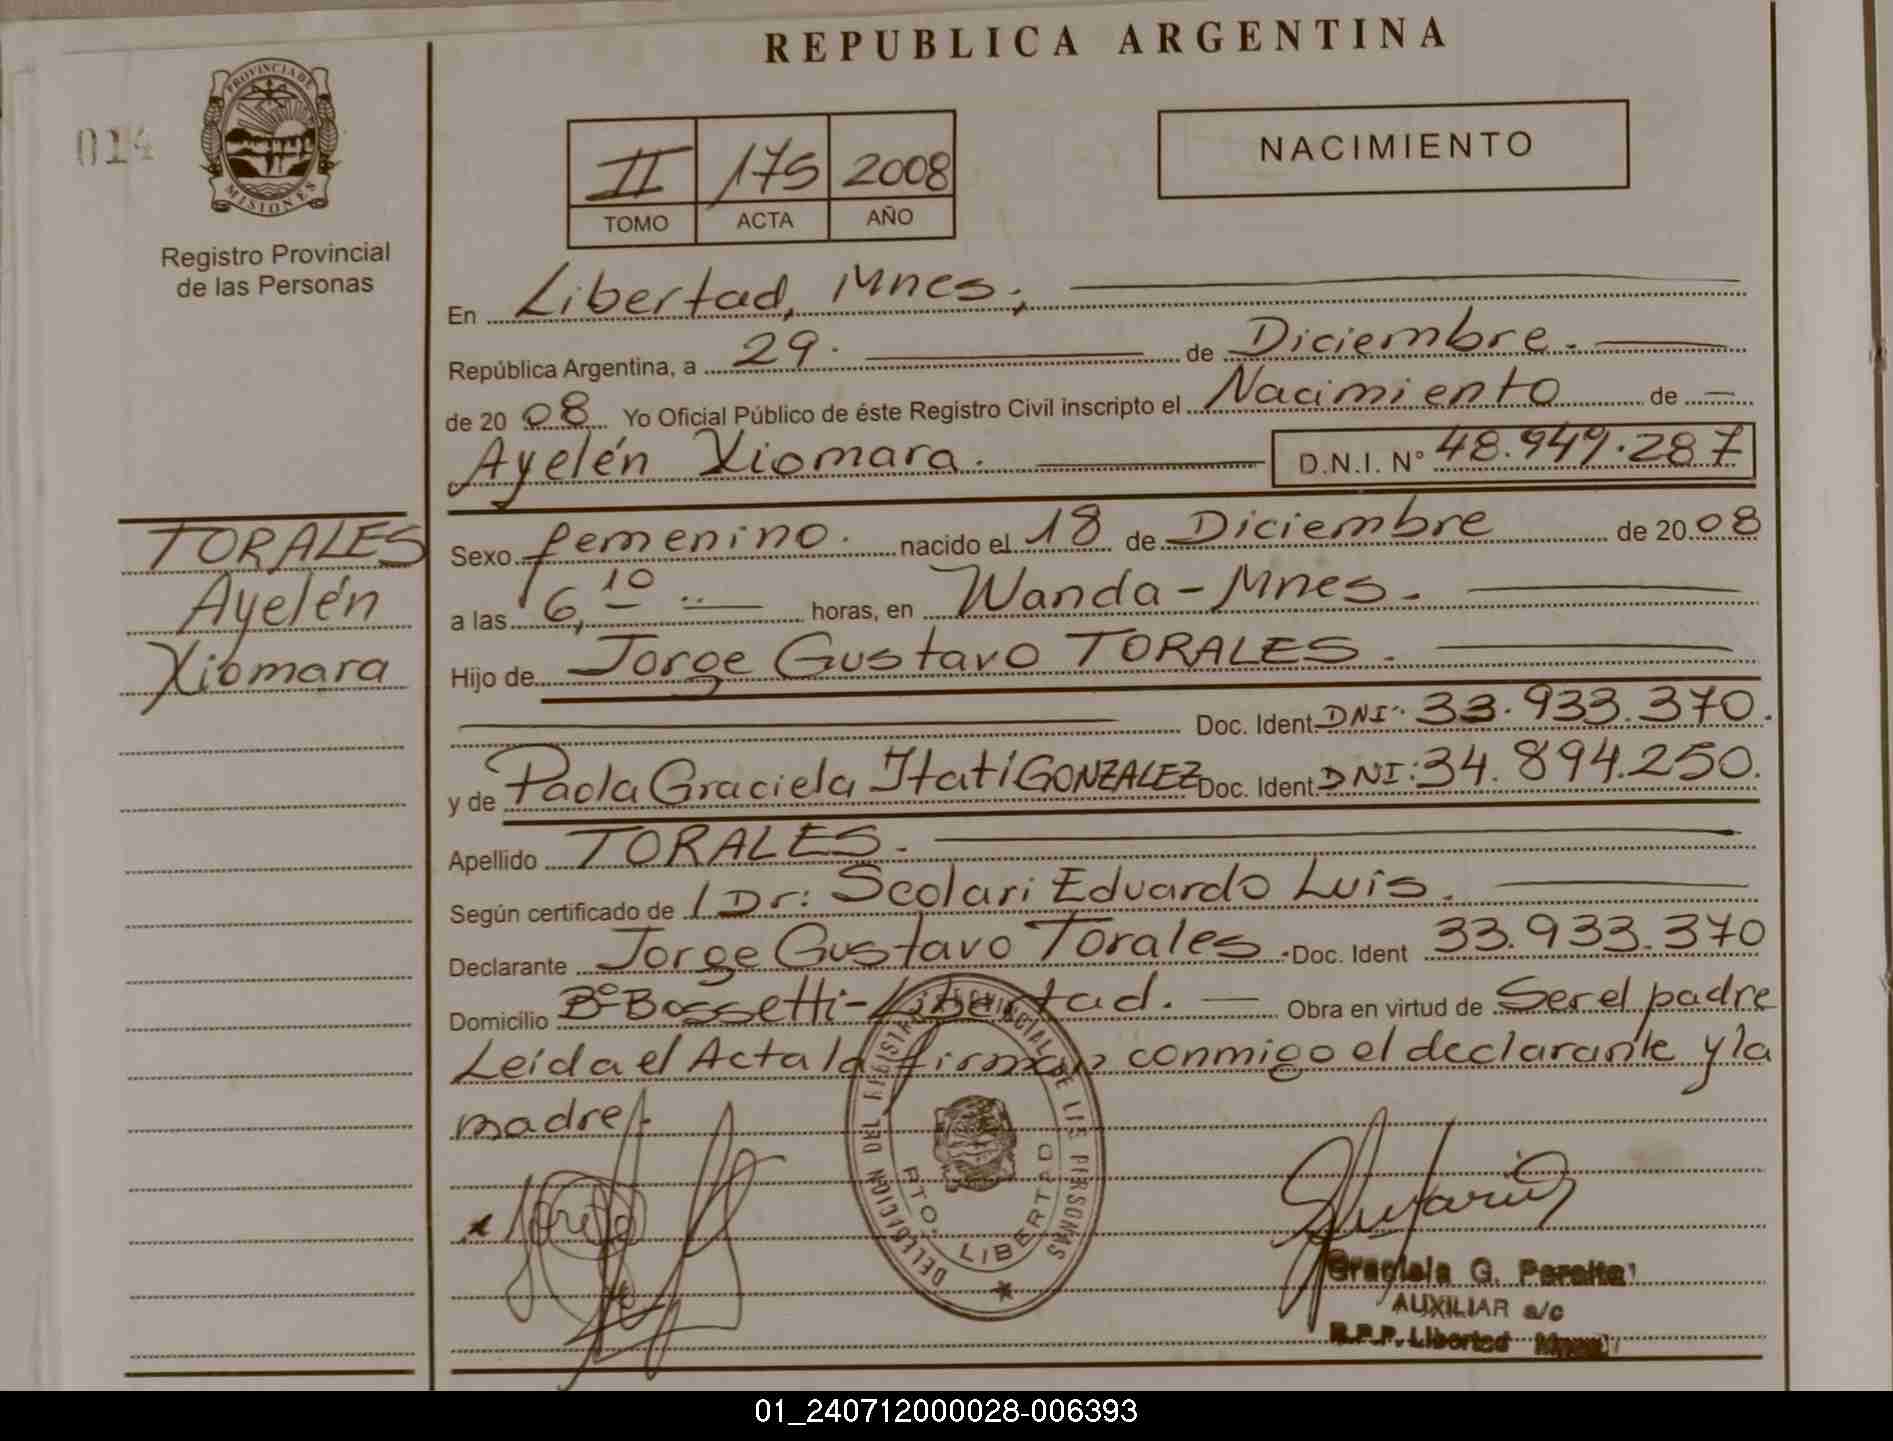 REPUBLICA ARGENTINA
PROVINCIA DE MISIONES
014
Registro Provincial
de las Personas
II 175 2008
TOMO ACTA AÑO
NACIMIENTO
En Libertad, Mnes.
República Argentina, a 29. de Diciembre.
de 20 08 Yo Oficial Público de éste Registro Civil inscripto el Nacimiento de
Ayelén Xiomara. D.N.I. N° 48.949.287
TORALES
Ayelén
Xiomara
Sexo femenino. nacido el 18 de Diciembre de 20 08
a las 6,10 horas, en Wanda - Mnes.
Hijo de Jorge Gustavo TORALES.
Doc. Ident. DNI: 33.933.370.
y de Paola Graciela Itatí GONZALEZ Doc. Ident. DNI: 34.894.250.
Apellido TORALES.
Según certificado de Dr: Scolari Eduardo Luis.
Declarante Jorge Gustavo Torales. Doc. Ident 33.933.370
Domicilio B° Bossetti - Libertad. Obra en virtud de Ser el padre
Leída el Acta la firman conmigo el declarante y la
madre.
DELEGACION DEL REGISTRO PROVINCIAL DE LAS PERSONAS
PTO. LIBERTAD
Graciela G. Peralta
AUXILIAR a/c
R.P.P. Libertad Mnes.
01_240712000028-006393